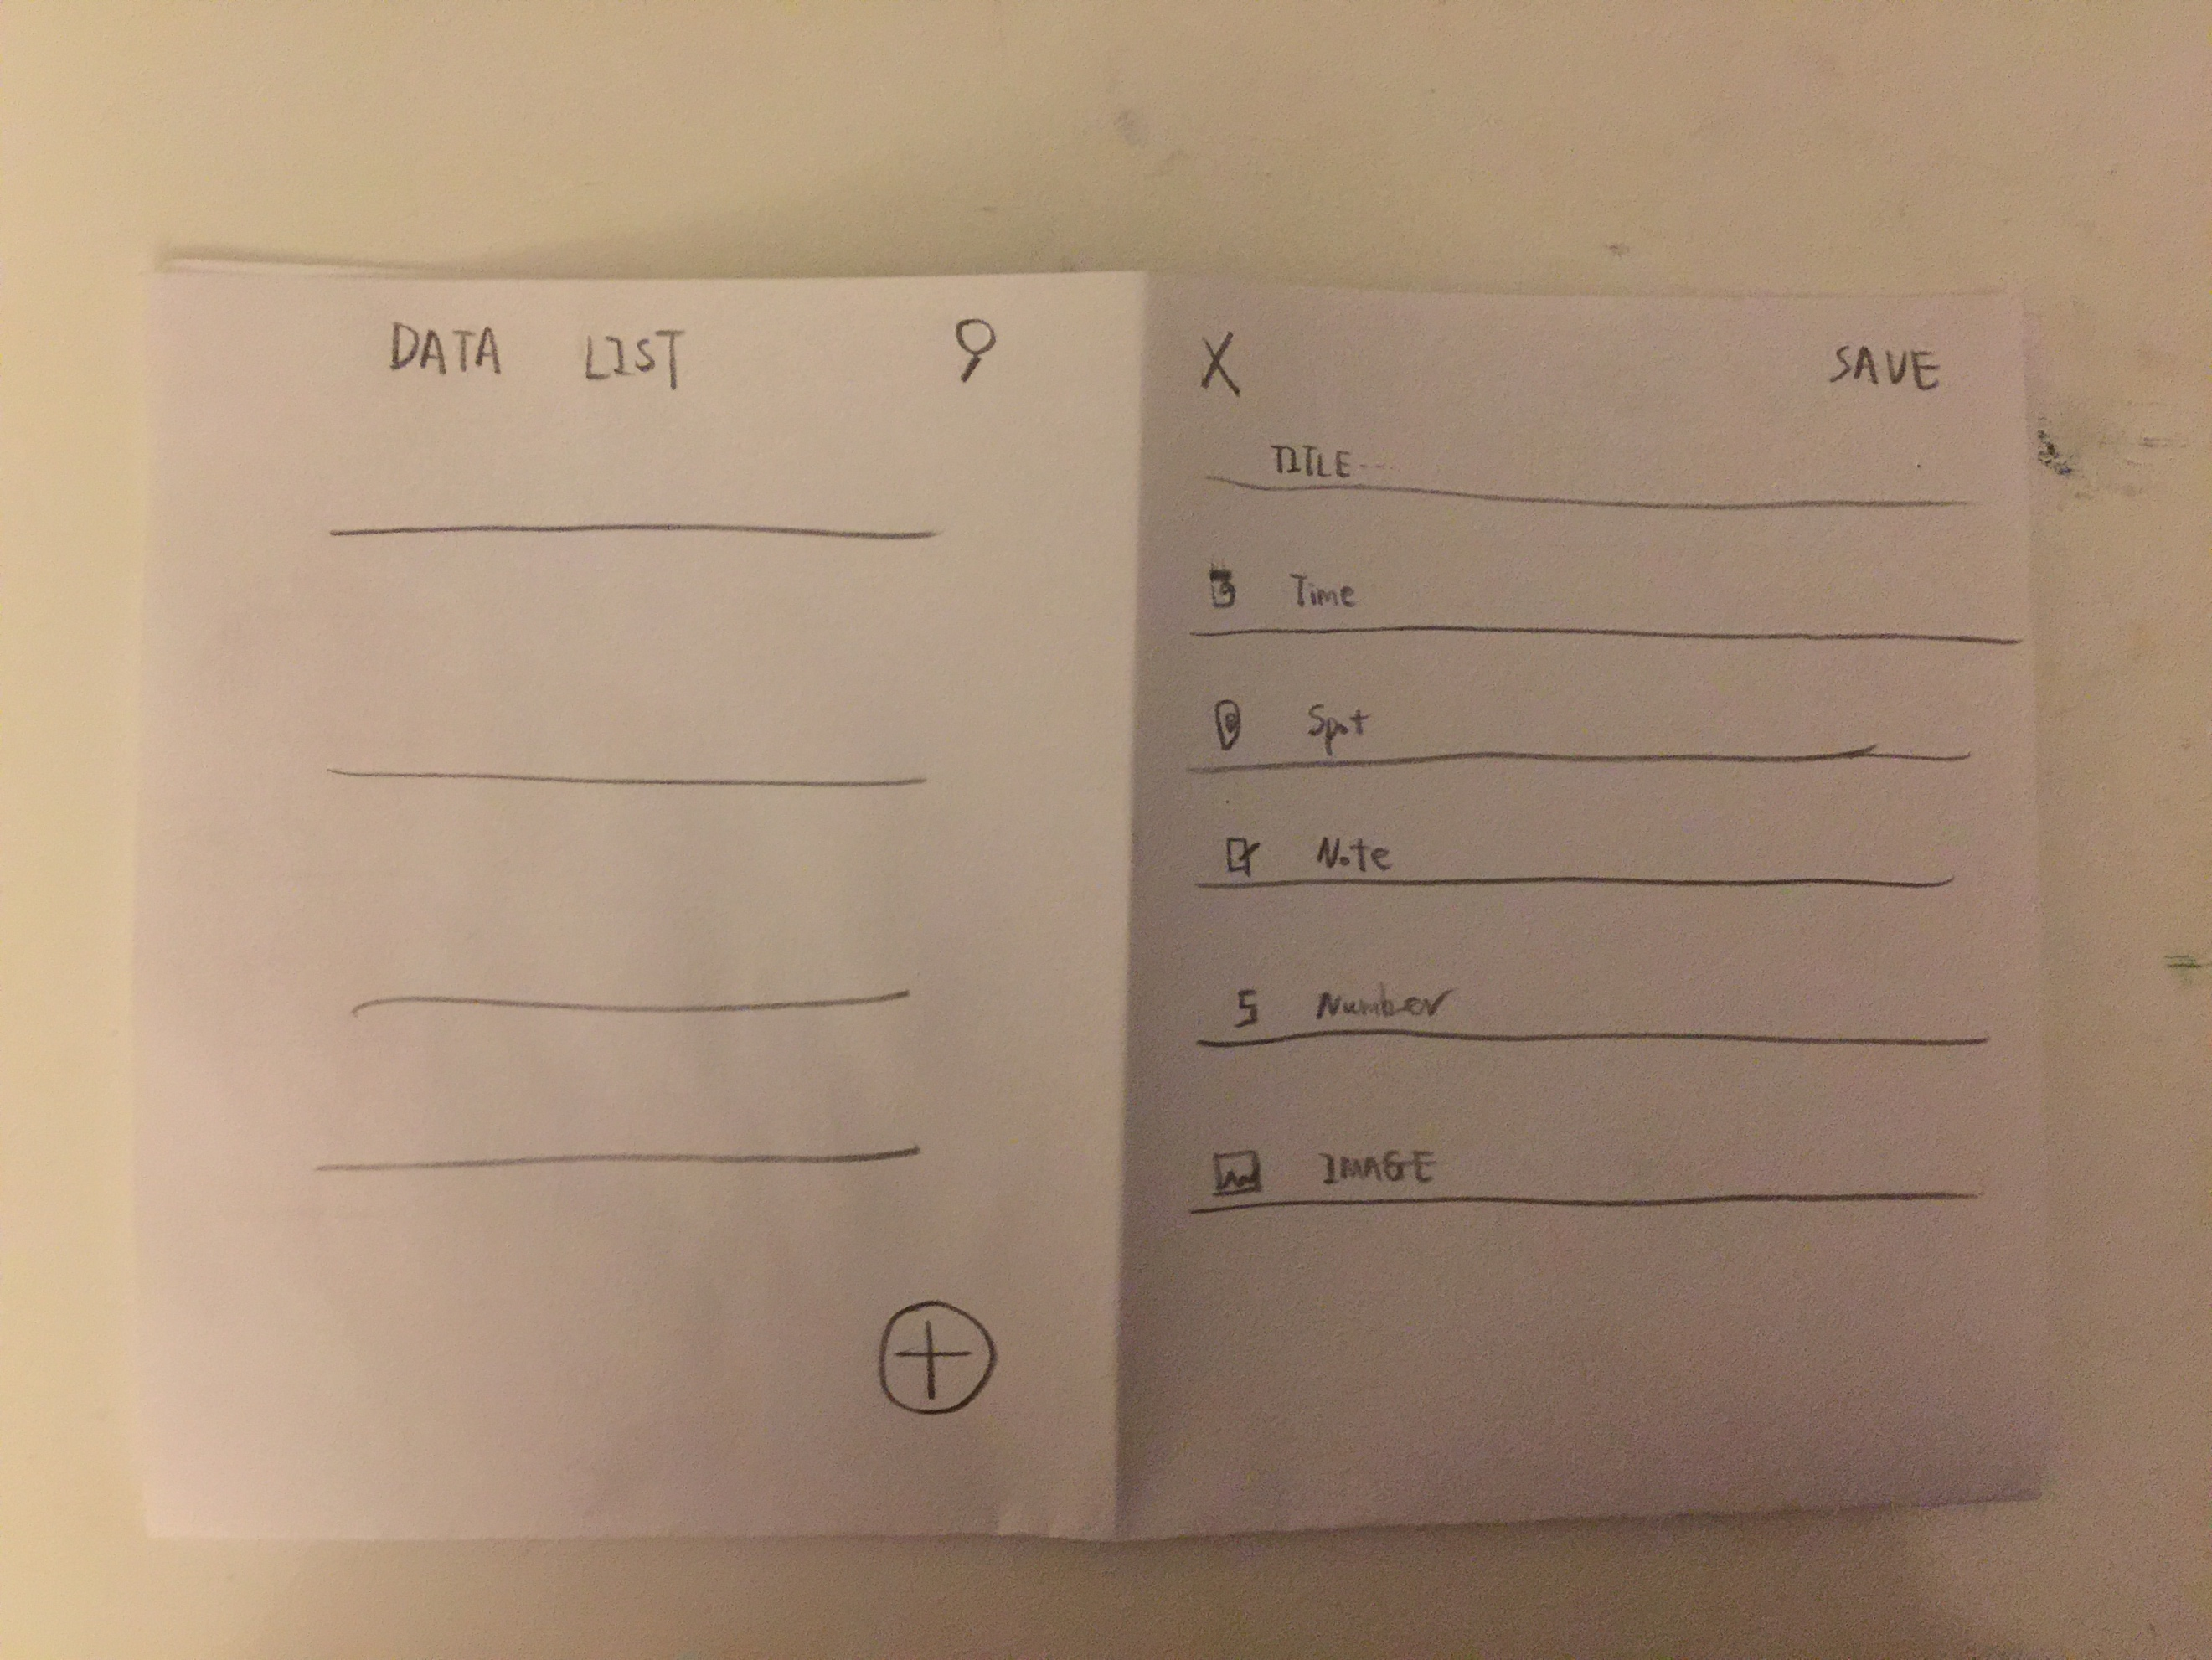 DATA LIST
X SAVE
TITLE...
Time
Spot
Note
5 Number
IMAGE